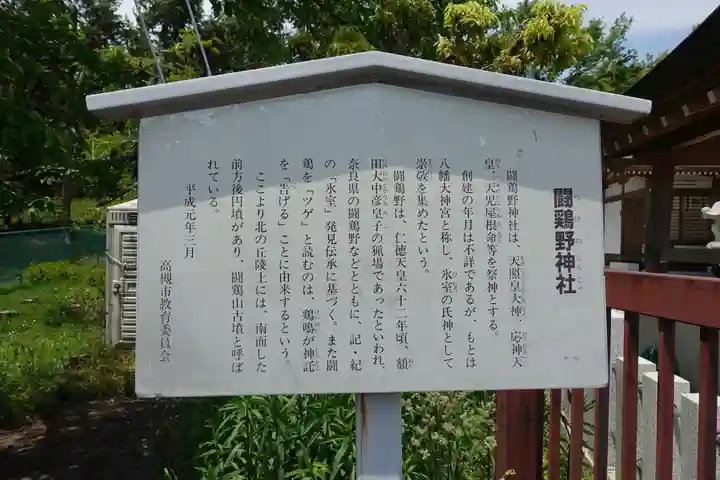 闘鶏野神社
闘鶏野神社は、天照皇大神、応神天
皇、天児屋根命等を祭神とする。
創建の年月は不詳であるが、もとは
八幡大神宮と称し、氷室の氏神として
崇敬を集めたという。
闘鶏野は、仁徳天皇六十二年頃、額
田大中彦皇子の猟場であったといわれ、
奈良県の闘鶏野などとともに、記・紀
の「氷室」発見伝承に基づく。また闘
鶏を「ツゲ」と読むのは、鶏鳴が神託
を「告げる」ことに由来するという。
ここより北の丘陵上には、南面した
前方後円墳があり、闘鶏山古墳と呼ば
れている。
平成元年三月
高槻市教育委員会